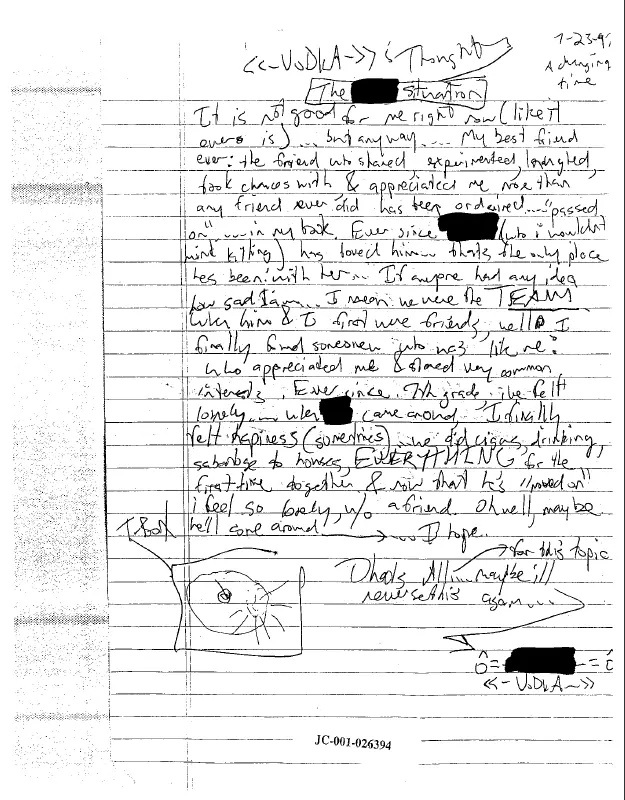 7-23-97
<<-VoDkA->>'s Thought
A changing
time
The situation
It is not good for me right now (like it
ever is) ... but anyway... My best friend
ever: the friend who shared, experimented, laughed,
took chances with & appreciated me more than
any friend ever did has been ordained... "passed
on" ..... in my book. Ever since (who i wouldnt
mind killing) has loved him... thats the only place
hes been: with her... If anyone had any idea
how sad I am... I mean we were the TEAM
when him & I first were friends, well I
finally found someone who was like me:
who appreciated me & shared very common
interests. Ever since 7th grade, ive felt
lonely.... when came around I finally
felt happiness (sometimes) we did cigars, drinking,
sabotage to houses, EVERYTHING for the
first time together, & now that hes "moved on"
i feel so lonely, w/o a friend. Oh well, maybe
hell come around ... I hope.
for this topic
Thats All.... maybe ill
reverse this
again.....
<<-VoDkA->>
JC-001-026394